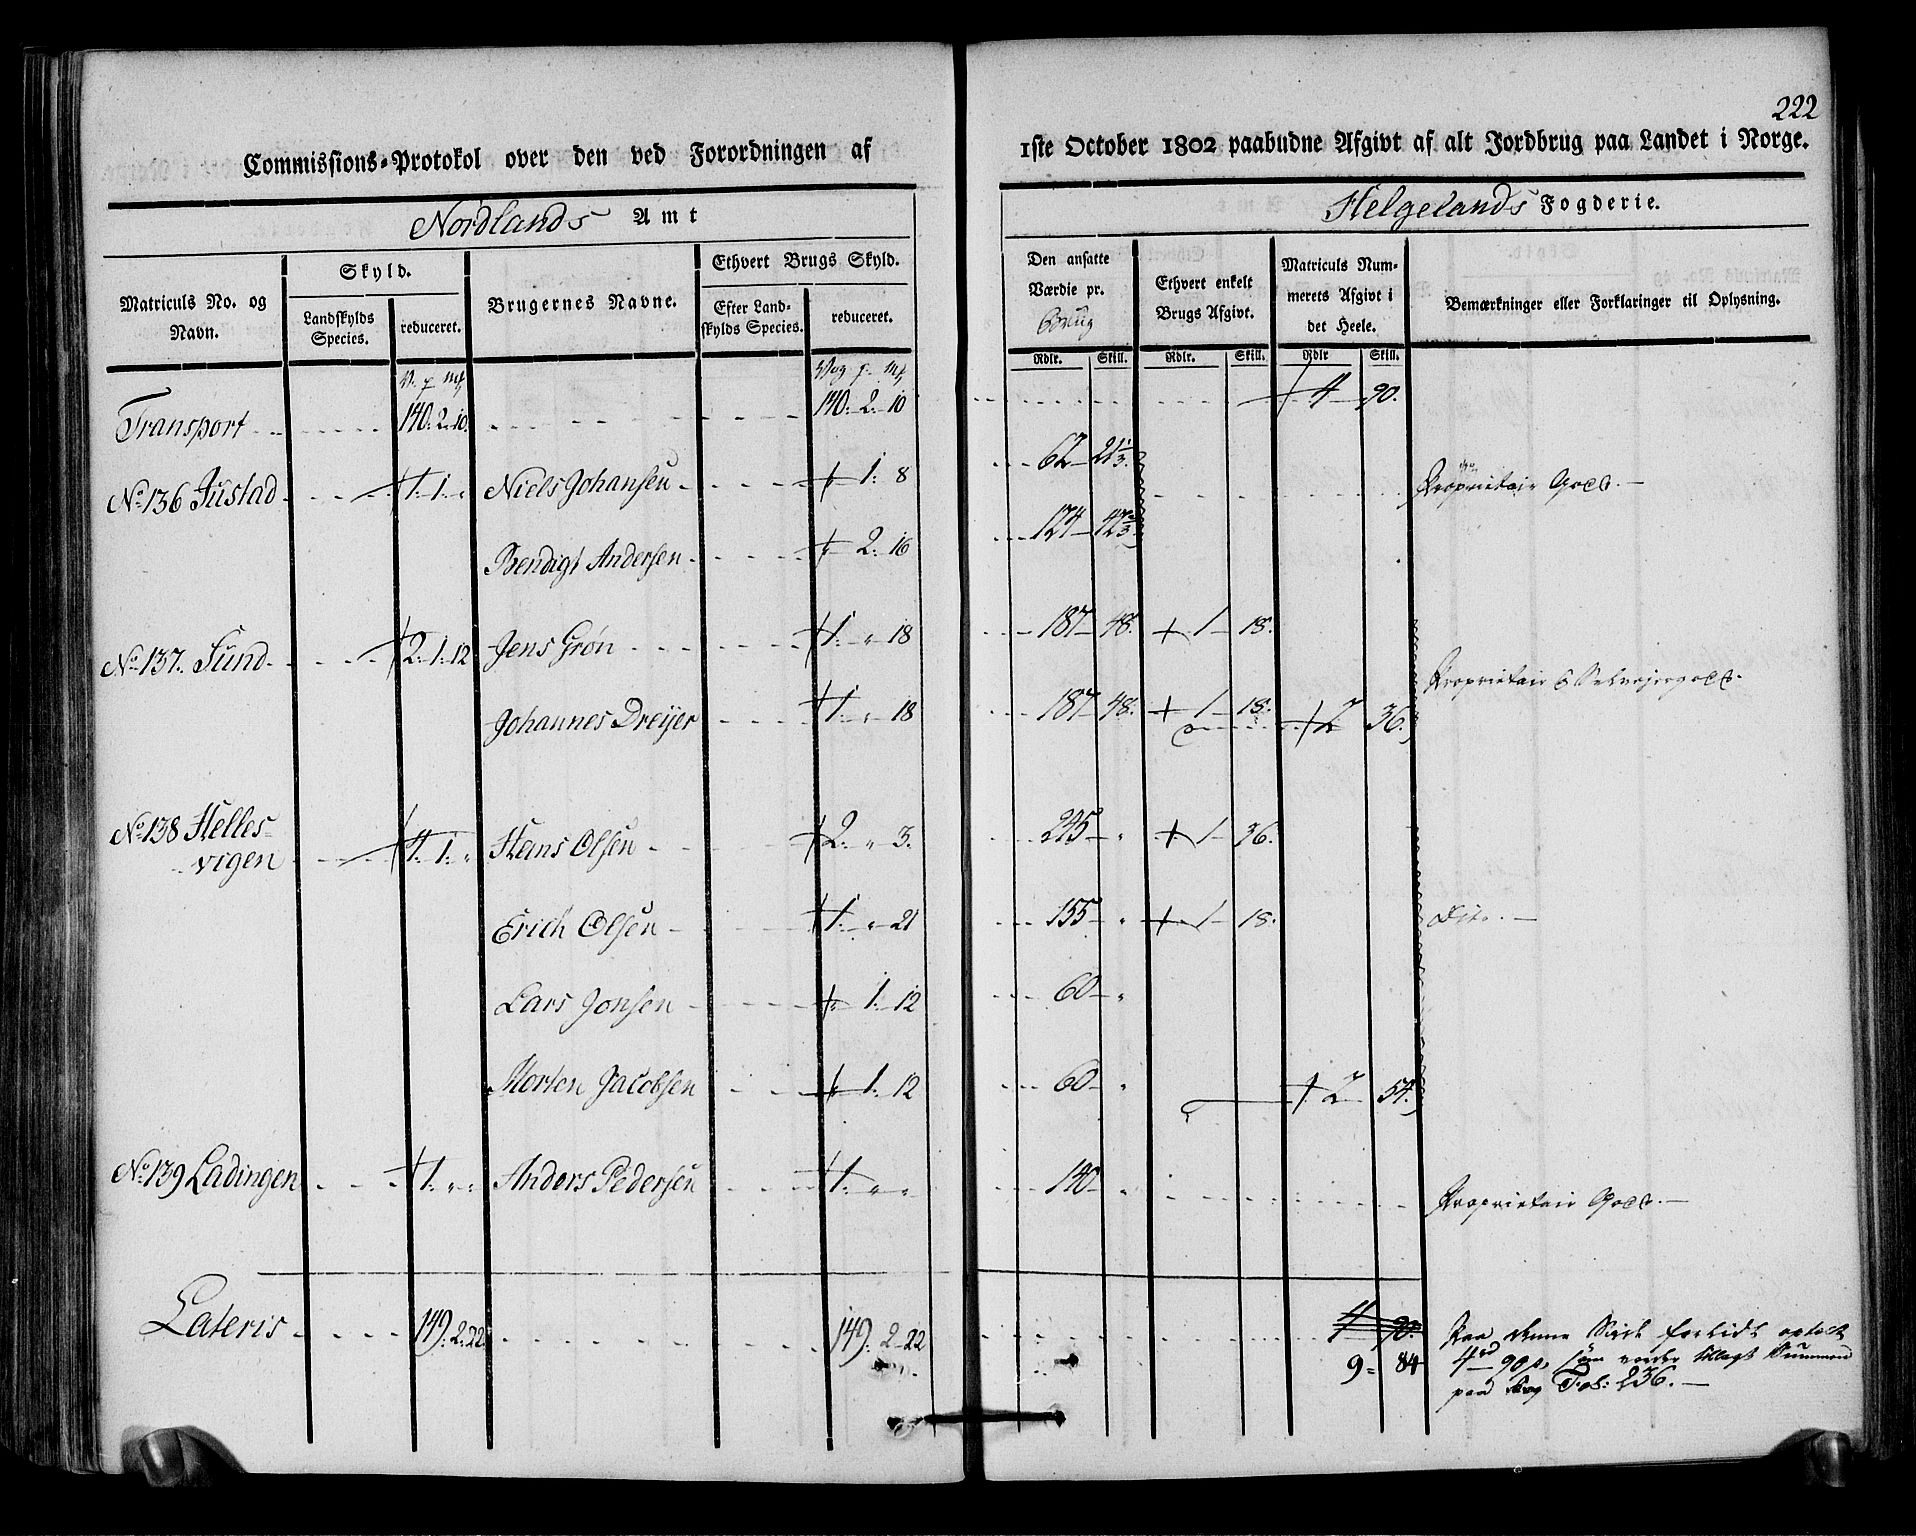 222
Commissions-Protokol over den ved Forordningen af 1ste October 1802 paabudne Afgivt af alt Jordbrug paa Landet i Norge.
Nordlands Amt
Helgelands Fogderie.
Matriculs No. og Navn.
Skyld.
Landskylds Species.
reduceret.
Brugernes Navne.
Ethvert Brugs Skyld.
Efter Landskylds Species.
reduceret.
Den ansatte Værdie pr.
Rdlr. Skill.
Ethvert enkelt Brugs Afgivt.
Rdlr. Skill.
Matriculs Nummerets Afgivt i det Heele.
Rdlr Skill.
Bemærkninger eller Forklaringer til Oplysning.
V. p mk
Vog p. mk
Transport 140. 2. 10. 140. 2. 10 4 90.
No 136 Justad 1. 1. " Niels Johansen 1. 8 62 21 1/3. Proprietair Gods.
Bendigt Andersen " 2. 16 124 42 2/3
No 137. Sund 2. 1. 12 Jens Grön 1. " 18 187 48. 1 18. Proprietair & Selveiergods.
Johannes Dreijer 1. " 18 187 48. 1 18. 2 36.
No 138 Helles-
vigen 4. 1. " Hans Olsen 2. " 3. 245 " 1 36.
Erich Olsen 1. " 21 155 " 1 18. Dito.
Lars Jonsen " 1. 12 60 "
Morten Jacobsen " 1. 12 60 " 2 54.
No 139 Ladingen 1. " " Anders Pedersen 1. " " 140 " Proprietair Gods.
Lateris 149. 2. 22. 149. 2. 22 4 90.
9 = 84
Paa denne Side forlidt optalt
4 rd 90 s. som under Summen
paa Fol: 236.